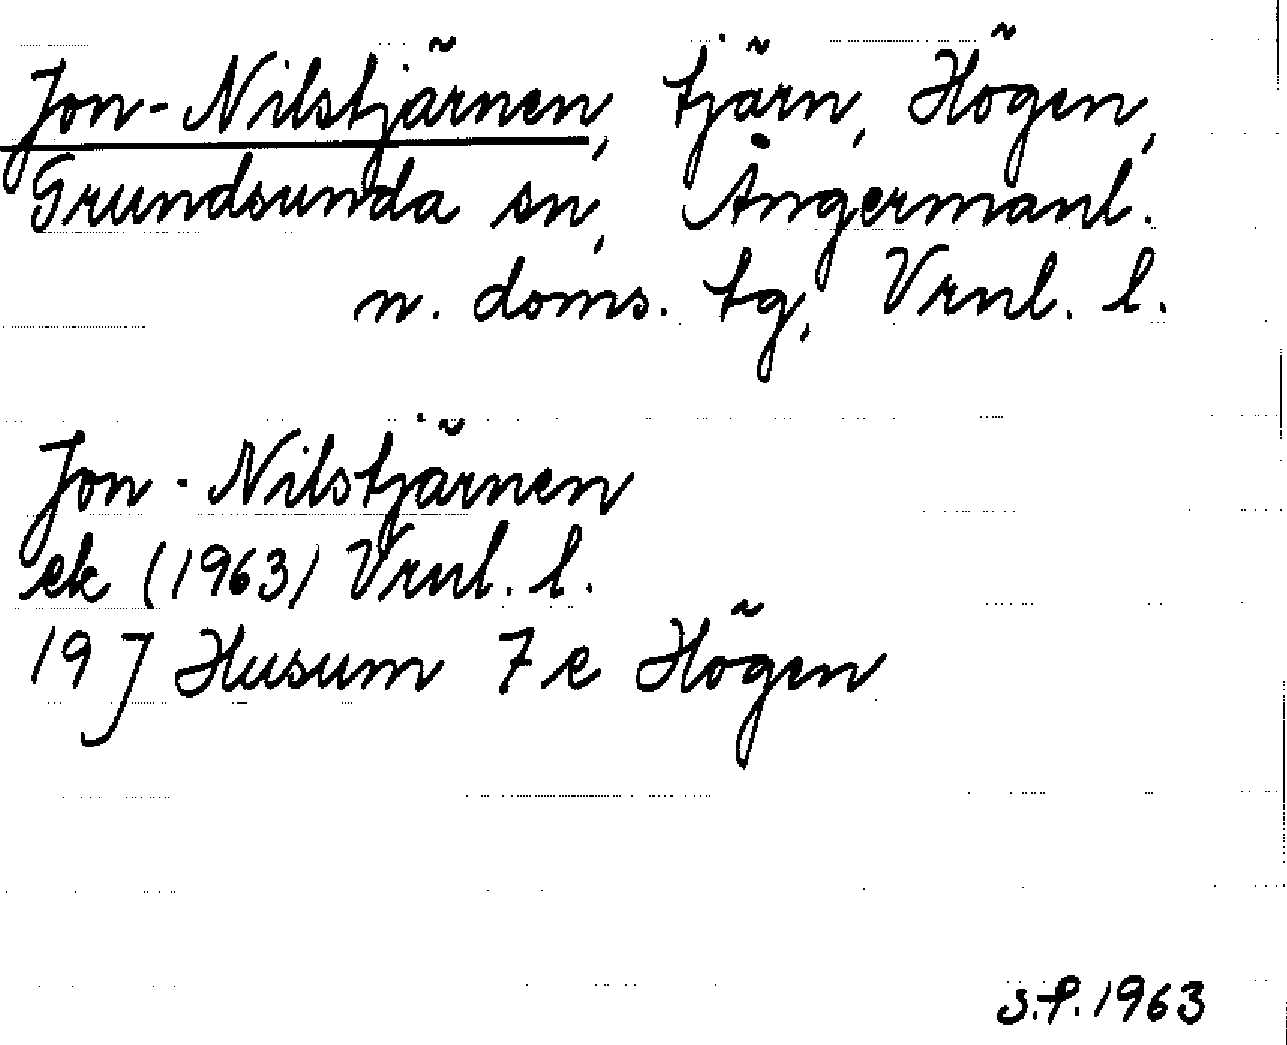 Jon-Nilstjärnen, tjärn, Högen,
Grundsunda sn, Ångermanl.
n. doms. tg, Vrnl. l.
Jon-Nilstjärnen
ek (1963) Vrnl. l.
19 J Husum 7 e Högen
S.P. 1963